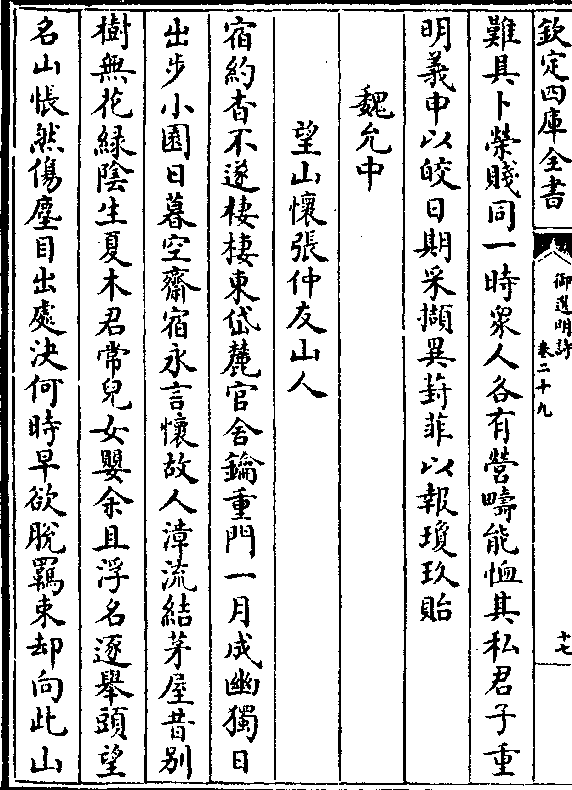 欽定四庫全書
御選明詩
卷二十九
十七
難具卜榮賤同一時衆人各有營疇能恤其私君子重
明義申以皎日期采擷異葑菲以報瓊玖貽
魏允中
望山懷張仲友山人
宿約杳不遂棲棲東岱麓官舍鑰重門一月成幽獨日
出步小園日暮空齋宿永言懷故人漳流結茅屋昔别
樹無花緑陰生夏木君常兒女嬰余且浮名逐舉頭望
名山悵然傷塵目出處决何時早欲脱羈束却向此山